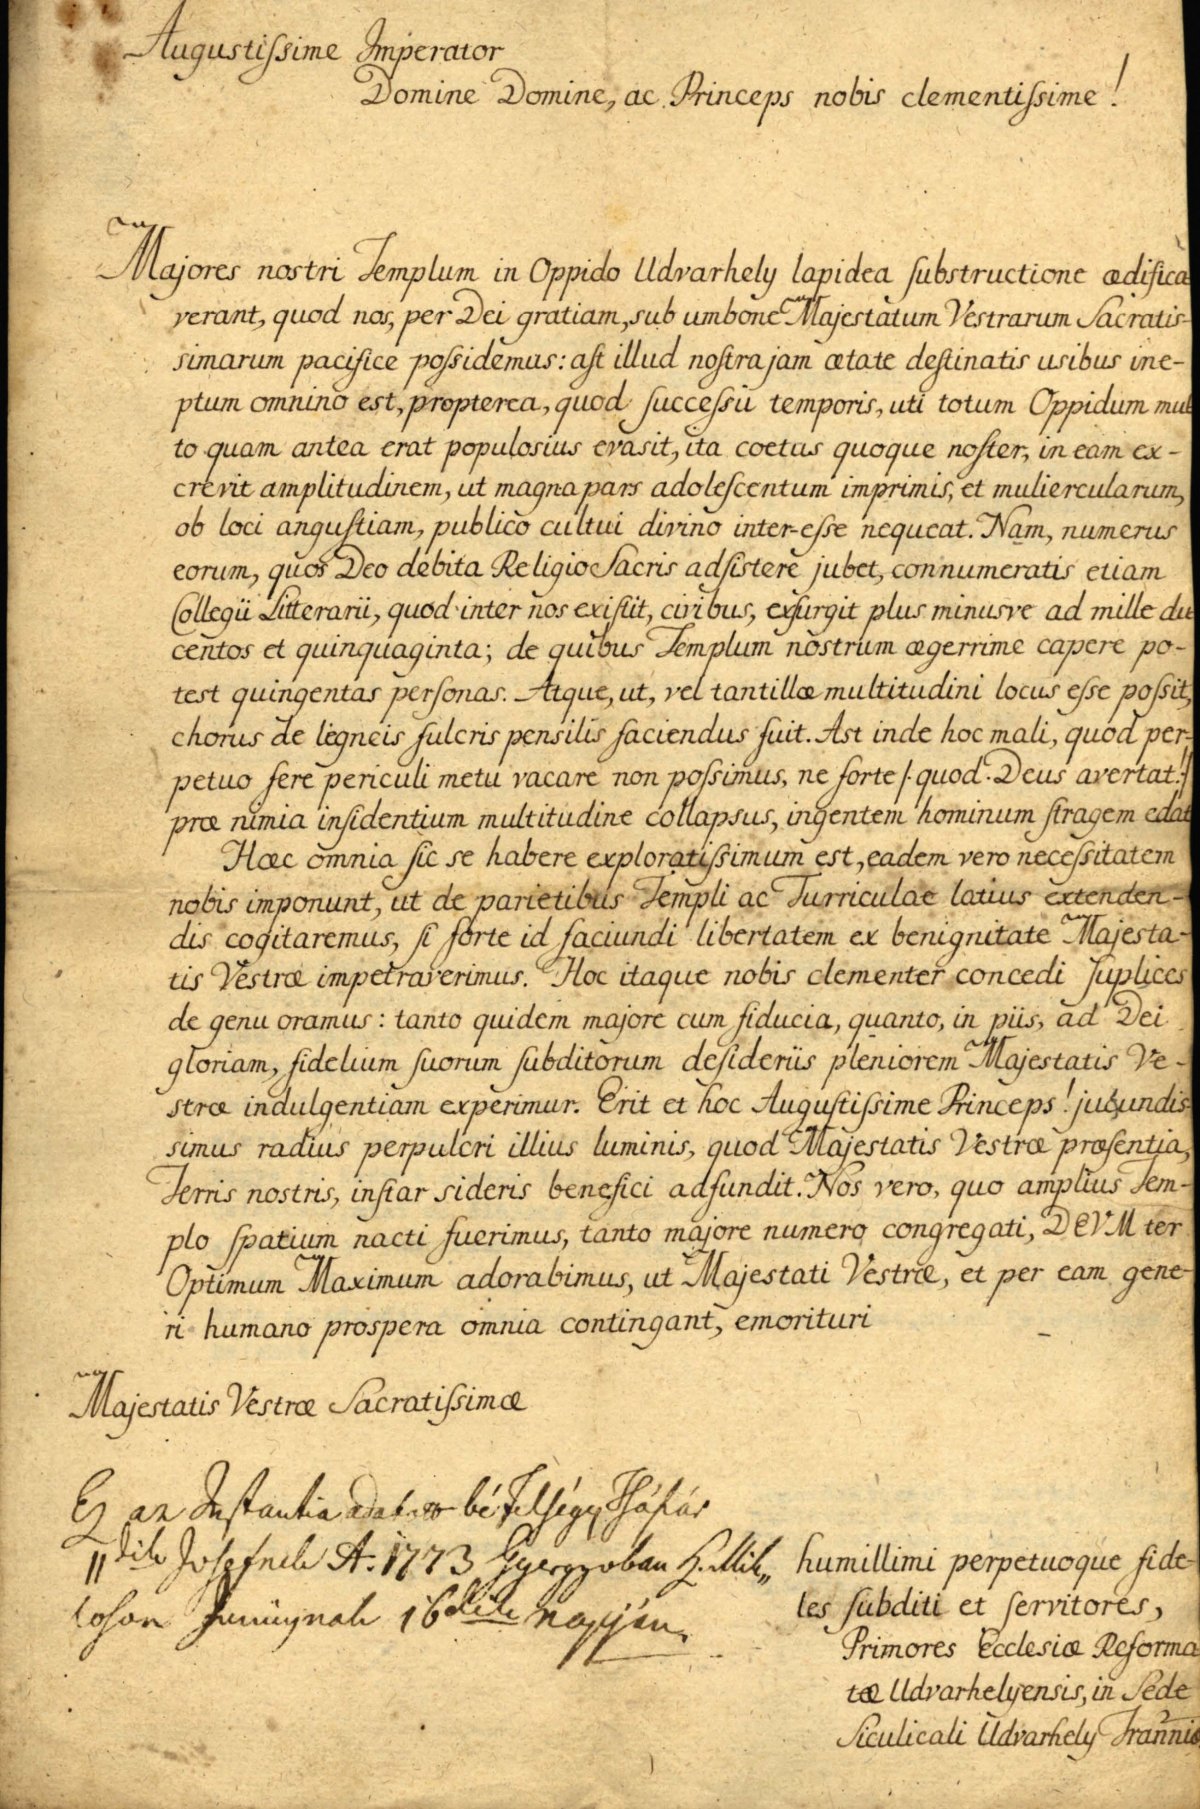 Augustissime Imperator
Domine Domine, ac Princeps nobis clementissime!
Majores nostri Templum in Oppido Udvarhely lapidea substructione ædifica
verant, quod nos, per Dei gratiam, sub umbone Majestatum Vestrarum Sacratis-
simarum pacifice possidemus: ast illud nostra jam ætate destinatis usibus ine-
ptum omnino est, propterea, quod successu temporis, uti totum Oppidum mul
to quam antea erat populosius evasit, ita coetus quoque noster, in eam ex-
crevit amplitudinem, ut magna pars adolescentum imprimis, et muliercularum,
ob loci angustiam, publico cultui divino inter-esse nequeat. Nam, numerus
eorum, quos Deo debita Religio Sacris adsistere jubet, connumeratis etiam
Collegii Litterarii, quod inter nos existit, civibus, exsurgit plus minusve ad mille du
centos et quinquaginta; de quibus Templum nostrum ægerrime capere po-
test quingentas personas. Atque, ut, vel tantillæ multitudini locus esse possit,
chorus de ligneis fulcris pensilis faciendus fuit. Ast inde hoc mali, quod per-
petuo fere periculi metu vacare non possimus, ne forte /: quod Deus avertat! :/
præ nimia insidentium multitudine collapsus, ingentem hominum stragem edat
Hæc omnia sic se habere exploratissimum est, eadem vero necessitatem
nobis imponunt, ut de parietibus Templi ac Turriculae latius extenden-
dis cogitaremus, si forte id faciundi libertatem ex benignitate Majesta-
tis Vestræ impetraverimus. Hoc itaque nobis clementer concedi suplices
de genu oramus: tanto quidem majore cum fiducia, quanto, in piis, ad Dei
gloriam, fidelium suorum subditorum desideriis pleniorem Majestatis Ve-
stræ indulgentiam experimur. Erit et hoc Augustissime Princeps! jucundis-
simus radius perpulcri illius luminis, quod Majestatis Vestræ præsentia,
Terris nostris, instar sideris benefici adfundit. Nos vero, quo amplius Tem-
plo spatium nacti fuerimus, tanto majore numero congregati, DEVM ter
Optimum Maximum adorabimus, ut Majestati Vestræ, et per eam gene-
ri humano prospera omnia contingant, emorituri
Majestatis Vestræ Sacratissimæ
Ez az Instantia adatott bé Felséges Tsászár
II dik Josefnek A. 1773 Gyergyoban Sz. Mik„
loson Juniusnak 16dik napján.
humillimi perpetuoque fide
les subditi et servitores,
Primores Ecclesiæ Reforma
tæ Udvarhelyensis, in Sede
Siculicali Udvarhely Tranniæ